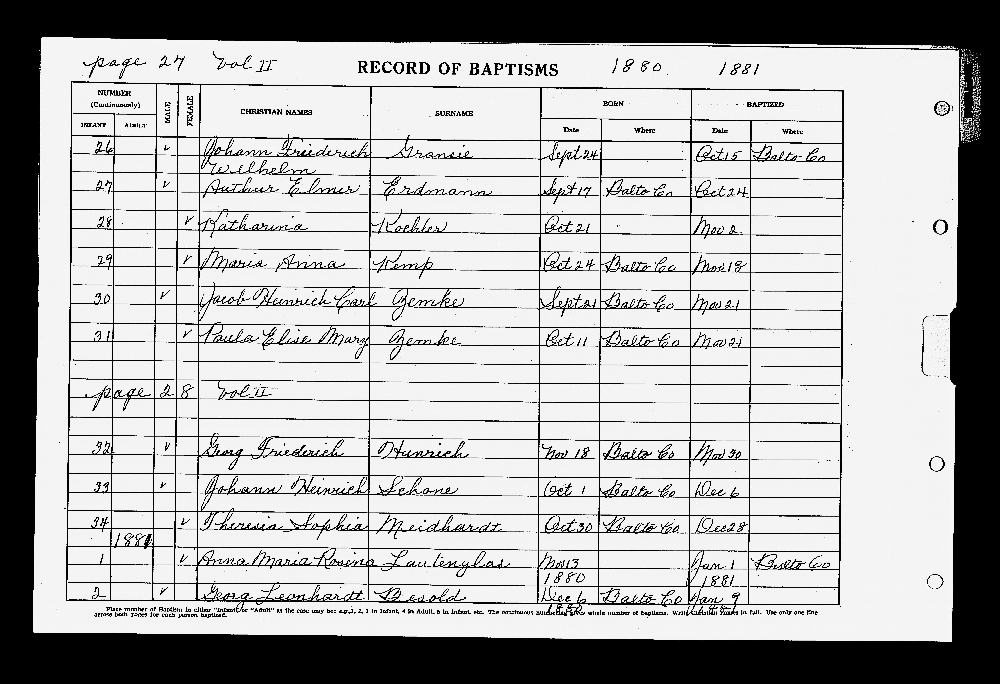 page 27 Vol II RECORD OF BAPTISMS 1880 1881
NUMBER (Continuously) MALE FEMALE CHRISTIAN NAMES SURNAME BORN BAPTIZED
INFANT ADULT Date Where Date Where
26 v Johann Friederich Gransie Sept 24 Oct 15 Balto Co
Wilhelm
27 v Arthur Elmer Erdmann Sept 17 Balto Co Oct 24
28 v Katharina Koehler Oct 21 Nov 2
29 v Maria Anna Kemp Oct 24 Balto Co Nov 18
30 v Jacob Heinrich Carl Zemke Sept 21 Balto Co Nov 21
31 v Paula Elise Mary Zemke Oct 11 Balto Co Nov 21
page 28 Vol II
32 v Georg Friederich Heinrich Nov 18 Balto Co Nov 30
33 v Johann Heinrich Schone Oct 1 Balto Co Dec 6
34 v Theresia Sophia Meidhardt Oct 30 Balto Co Dec 28
1881
1 v Anna Maria Rosina Lautenylas Nov 13 Jan 1 Balto Co
1880 1881
2 v Georg Leonhardt Besold Dec 6 Balto Co Jan 9
1880 1881
Place number of Baptism in either "Infant" or "Adult" as the case may be: e.g., 1, 2, 3 in Infant, 4 in Adult, 5 in Infant, etc. The continuous numbering gives whole number of baptisms. Write Christian Names in full. Use only one line
across both pages for each person baptized.